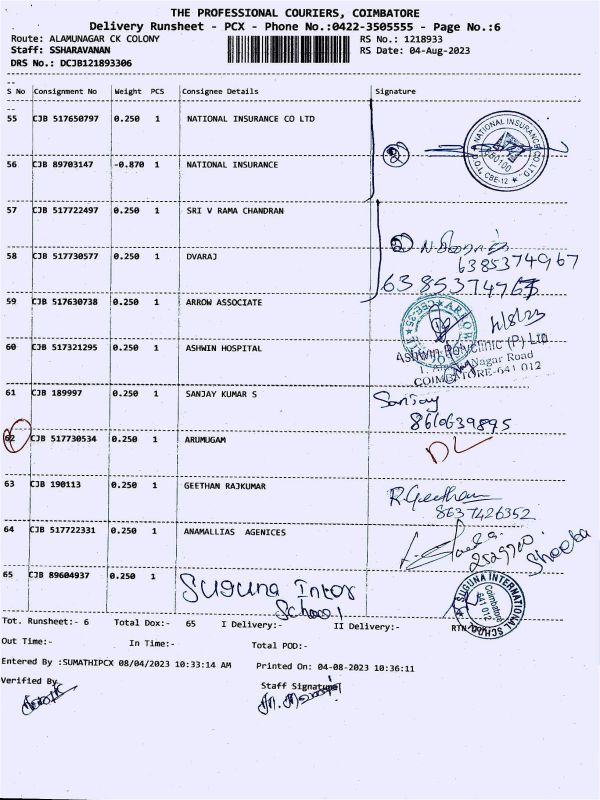 THE PROFESSIONAL COURIERS, COIMBATORE
Delivery Runsheet - PCX - Phone No.:0422-3505555 - Page No.:6
Route: ALAMUNAGAR CK COLONY RS No.: 1218933
Staff: SSHARAVANAN RS Date: 04-Aug-2023
DRS No.: DCJB121893306
S No Consignment No Weight PCS Consignee Details Signature
55 CJB 517650797 0.250 1 NATIONAL INSURANCE CO LTD
NATIONAL INSURANCE CO. LTD.
CBE-12
56 CJB 89703147 -0.870 1 NATIONAL INSURANCE
57 CJB 517722497 0.250 1 SRI V RAMA CHANDRAN
58 CJB 517730577 0.250 1 DVARAJ
6385374967
6385374967
59 CJB 517630738 0.250 1 ARROW ASSOCIATE
4/8/23
60 CJB 517321295 0.250 1 ASHWIN HOSPITAL
Ashwin Polyclinic (P) Ltd
Nagar Road
COIMBATORE-641 012
61 CJB 189997 0.250 1 SANJAY KUMAR S
Sanjay
8610639895
62 CJB 517730534 0.250 1 ARUMUGAM
DL
63 CJB 190113 0.250 1 GEETHAN RAJKUMAR
R.Geethan
8637426352
64 CJB 517722331 0.250 1 ANAMALLIAS AGENICES
Sheeba
65 CJB 89604937 0.250 1 Suguna Inter
School
SUGUNA INTERNATIONAL SCHOOL
Coimbatore
641 012
Tot. Runsheet:- 6 Total Dox:- 65 I Delivery:- II Delivery:- RTN
Out Time:- In Time:- Total POD:-
Entered By :SUMATHIPCX 08/04/2023 10:33:14 AM Printed On: 04-08-2023 10:36:11
Verified By Staff Signature